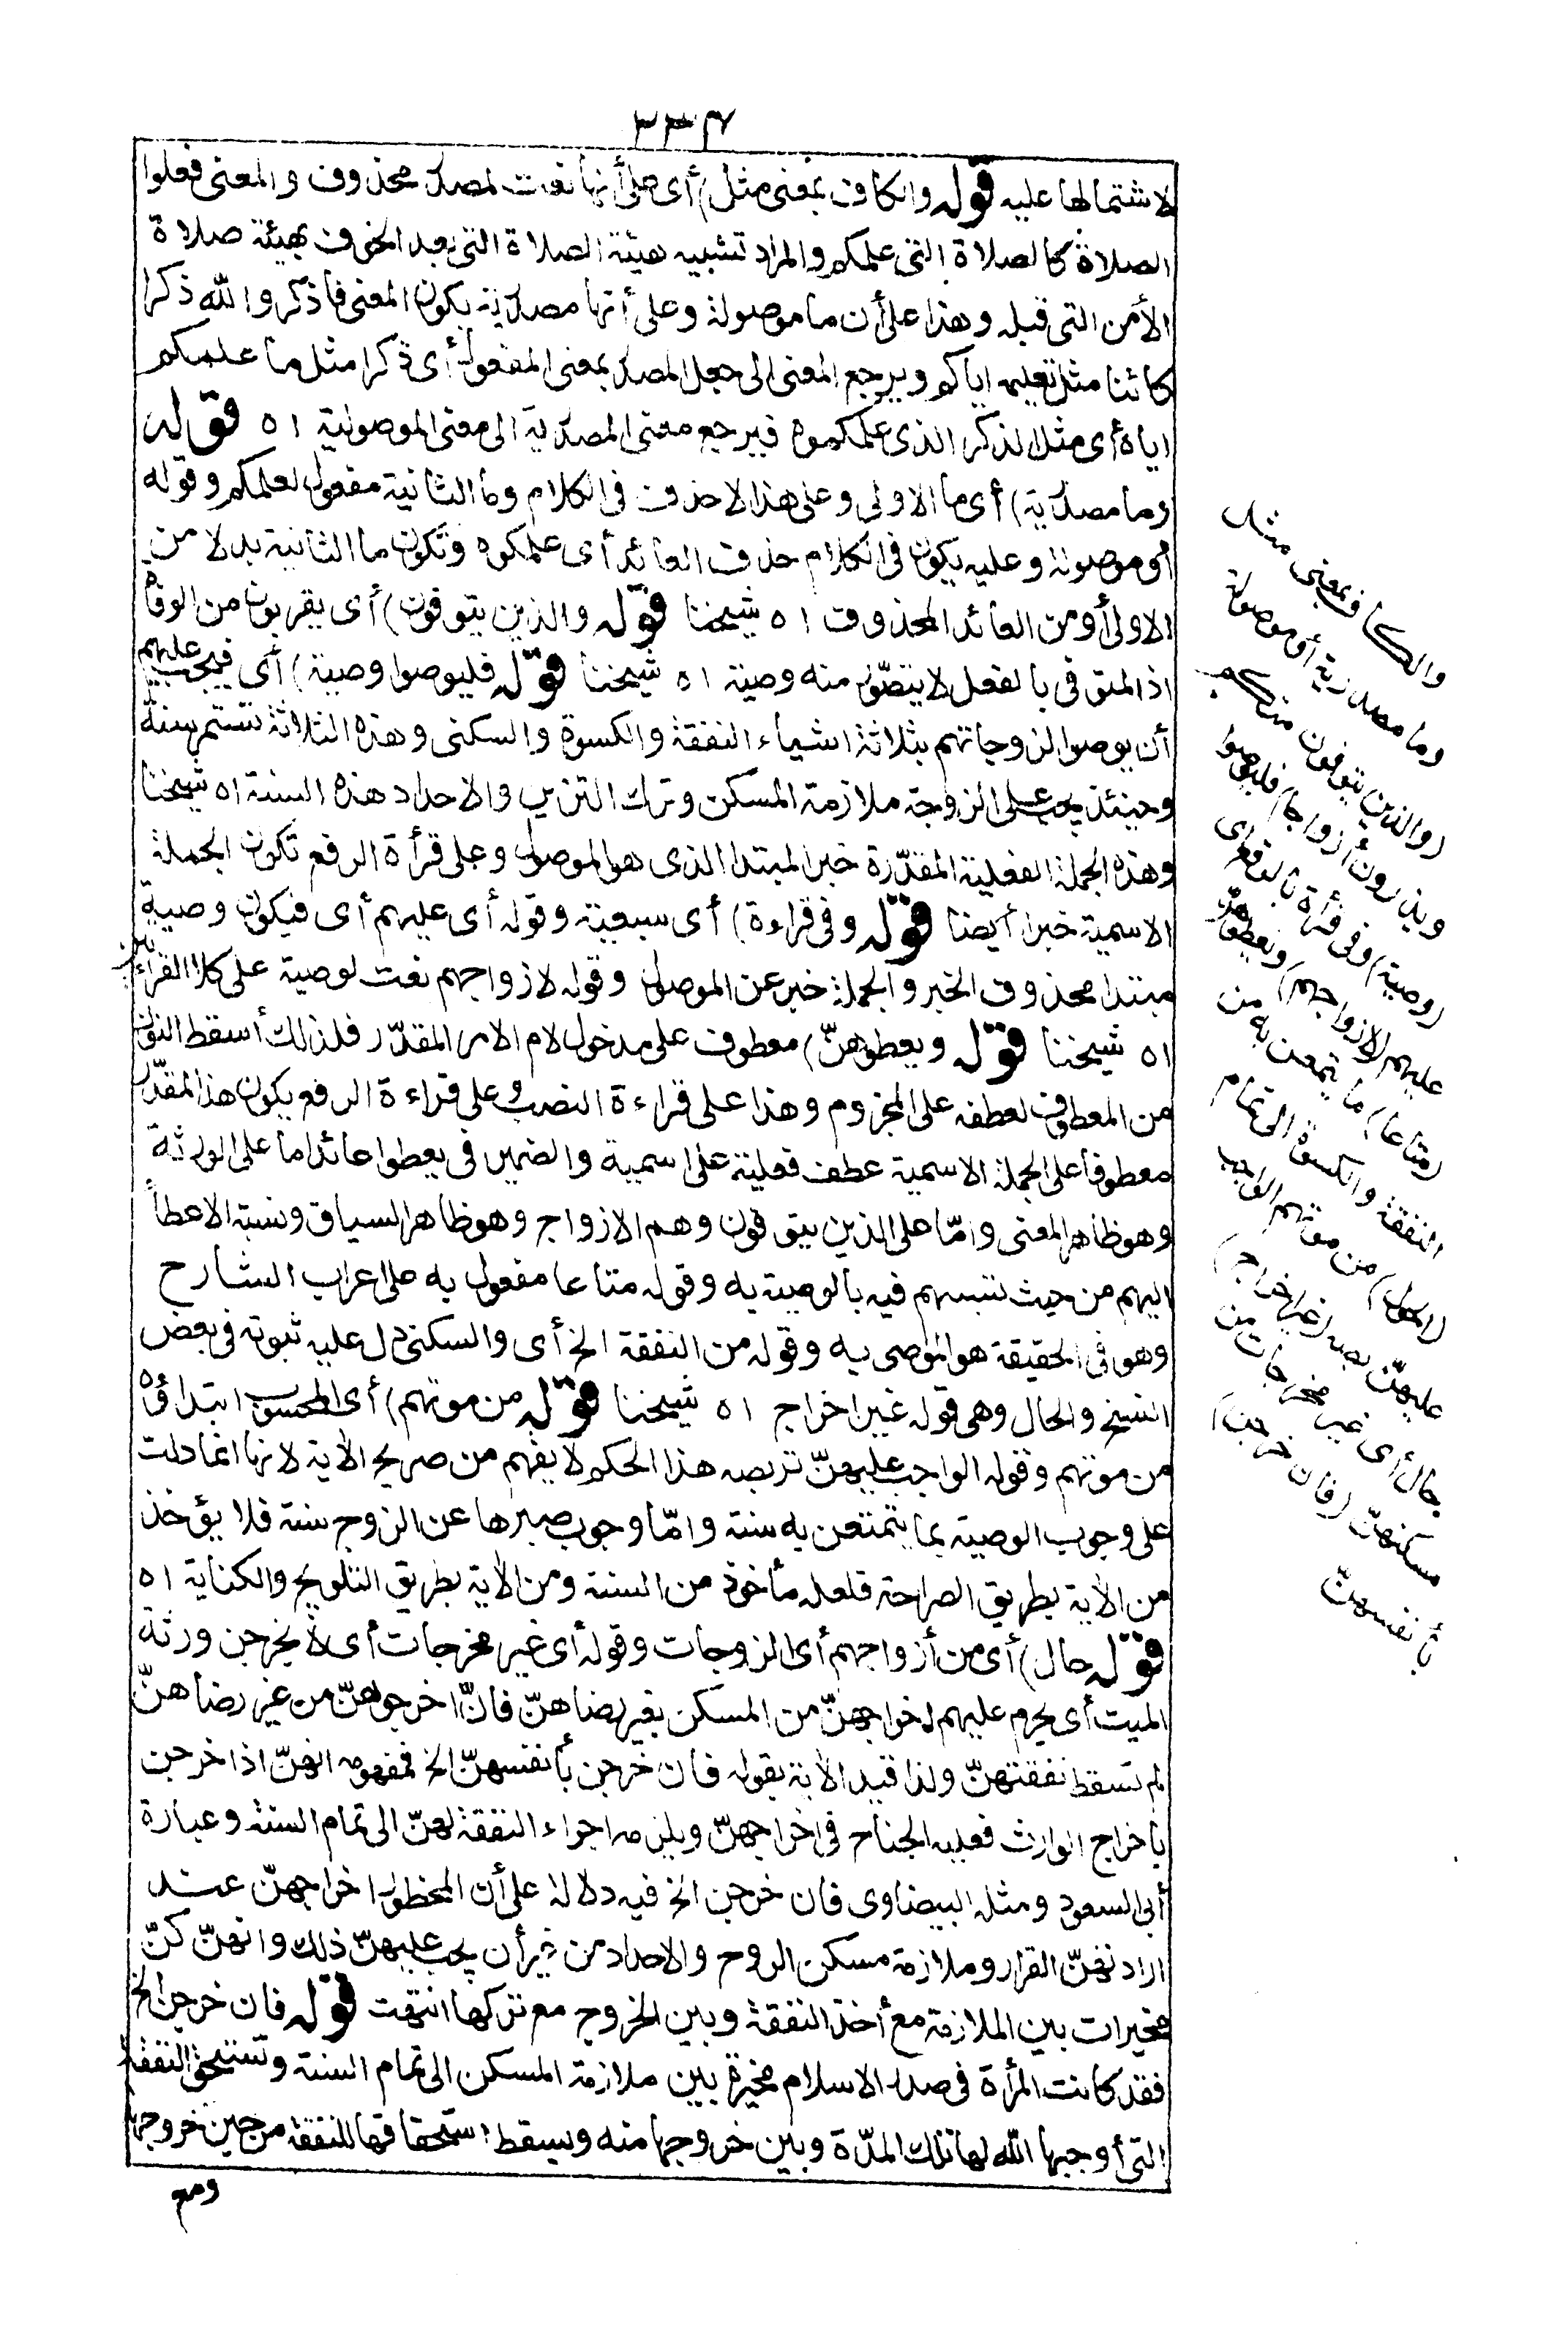 ٢٣٤
لاشتمالها عليه قوله والكاف بمعنى مثل) أى على أنها نعت لمصدر محذوف والمعنى فعلوا
الصلاة كالصلاة التى علمكم والمراد تشبيه هيئة الصلاة التى بعد الخوف بهيئة صلاة
الأمن التى قبله وهذا على أن ما موصولة وعلى أنها مصدرية يكون المعنى فاذكروا الله ذكرا
كائنا مثل تعليمه اياكم ويرجع المعنى الى جعل المصدر بمعنى المفعول أى ذكرا مثل ما علمكم
اياه أى مثل الذكر الذى علمكموه فيرجع معنى المصدرية الى معنى الموصولية اه قوله
وما مصدرية) أى ما الاولى وعلى هذا لا حذف فى الكلام وما الثانية مفعول لعلمكم وقوله
أو موصولة وعليه يكون فى الكلام حذف العائد أى علمكموه وتكون ما الثانية بدلا من
الاولى أو من العائد المحذوف اه شيخنا قوله والذين يتوفون) أى يقربون من الوفاة
اذ المتوفى بالفعل لا يتصور منه وصية اه شيخنا قوله فليوصوا وصية) أى فيجب عليهم
أن يوصوا لزوجاتهم بثلاثة اشياء النفقة والكسوة والسكنى وهذه الثلاثة تستمر سنة
وحينئذ يجب على الزوجة ملازمة المسكن وترك التزين والاحداد هذه السنة اه شيخنا
وهذه الجملة الفعلية المقدّرة خبر المبتدا الذى هو الموصول وعلى قرأة الرفع تكون الجملة
الاسمية خبرا أيضا قوله وفى قراءة) أى سبعية وقوله أى عليهم أى فيكون وصية
مبتدا محذوف الخبر والجملة خبر عن الموصول وقوله لازواجهم نعت لوصية على كلا القراءتين
اه شيخنا قوله ويعطوهنّ) معطوف على مدخول لام الامر المقدّر فلذلك أسقط النون
من المعطوف لعطفه على المجزوم وهذا على قراءة النصب وعلى قراءة الرفع يكون هذا المقدّر
معطوفا على الجملة الاسمية عطف فعلية على اسمية والضمير فى يعطوا عائد اما على الورثة
وهو ظاهر المعنى وامّا على الذين يتوفون وهم الازواج وهو ظاهر السياق ونسبة الاعطاء
اليهم من حيث تسببهم فيه بالوصية به وقوله متاعا مفعول به على اعراب الشارح
وهو فى الحقيقة هو الموصى به وقوله من النفقة الخ أى والسكنى دل عليه ثبوته فى بعض
النسخ والحال وهى قوله غير اخراج اه شيخنا قوله من موتهم) أى المحسوب ابتداؤه
من موتهم وقوله الواجب عليهنّ تربصه هذا الحكم لا يفهم من صريح الآية لانها انما دلت
على وجوب الوصية بما يتمتعن به سنة وامّا وجوب صبرها عن الزوج سنة فلا يؤخذ
من الآية بطريق الصراحة فلعله مأخوذ من السنة ومن الآية بطريق التلويح والكناية اه
قوله حال) أى من أزواجهم أى الزوجات وقوله أى غير مخرجات أى لا يخرجن ورثة
الميت أى يحرم عليهم اخراجهنّ من المسكن بغير رضاهنّ فانّ اخرجوهنّ من غير رضاهنّ
لم تسقط نفقتهنّ ولذا قيد الآية بقوله فان خرجن بأنفسهنّ الخ فمفهومه انهنّ اذا خرجن
باخراج الوارث فعليه الجناح فى اخراجهنّ ويلزمه اجراء النفقة لهنّ الى تمام السنة وعبارة
أبى السعود ومثله البيضاوى فان خرجن الخ فيه دلالة على أن المحظور اخراجهنّ عند
ارادتهنّ القرار وملازمة مسكن الزوج والاحداد من غير أن يجب عليهنّ ذلك وانهنّ كنّ
مخيرات بين الملازمة مع أخذ النفقة وبين الخروج مع تركها انتهت قوله فان خرجن الخ
فقد كانت المرأة فى صدر الاسلام مخيرة بين ملازمة المسكن الى تمام السنة وتستحق النفقة
التى أوجبها الله لها تلك المدّة وبين خروجها منه ويسقط استحقاقها للنفقة من حين خروجها
ومع
والكاف بمعنى مثل
وما مصدرية أو موصولة
(والذين يتوفون منكم
ويذرون أزواجا) فليوصوا
(وصية) وفى قرأة بالرفع أى
عليهم (لازواجهم) ويعطوهنّ
(متاعا) ما يتمتعن به من
النفقة والكسوة الى تمام
(الحول) من موتهم الواجب
عليهنّ تربصه (غير اخراج)
حال أى غير مخرجات من
مسكنهنّ (فان خرجن)
بأنفسهنّ